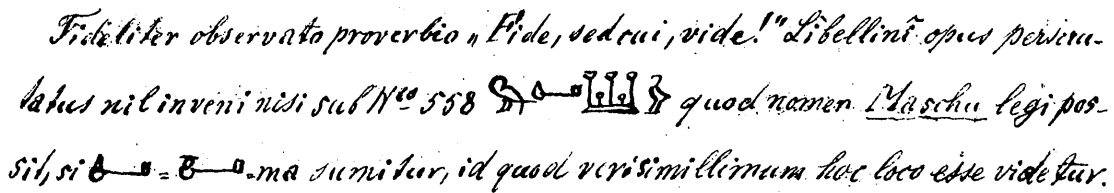 Fideliter observato proverbio „Fide, sed cui, vide!" Libellini opus perscru-
tatus nil inveni nisi sub No 558 quod nomen Maschu legi pos-
sit, si = = ma sumitur, id quod verisimillimum hoc loco esse videtur.